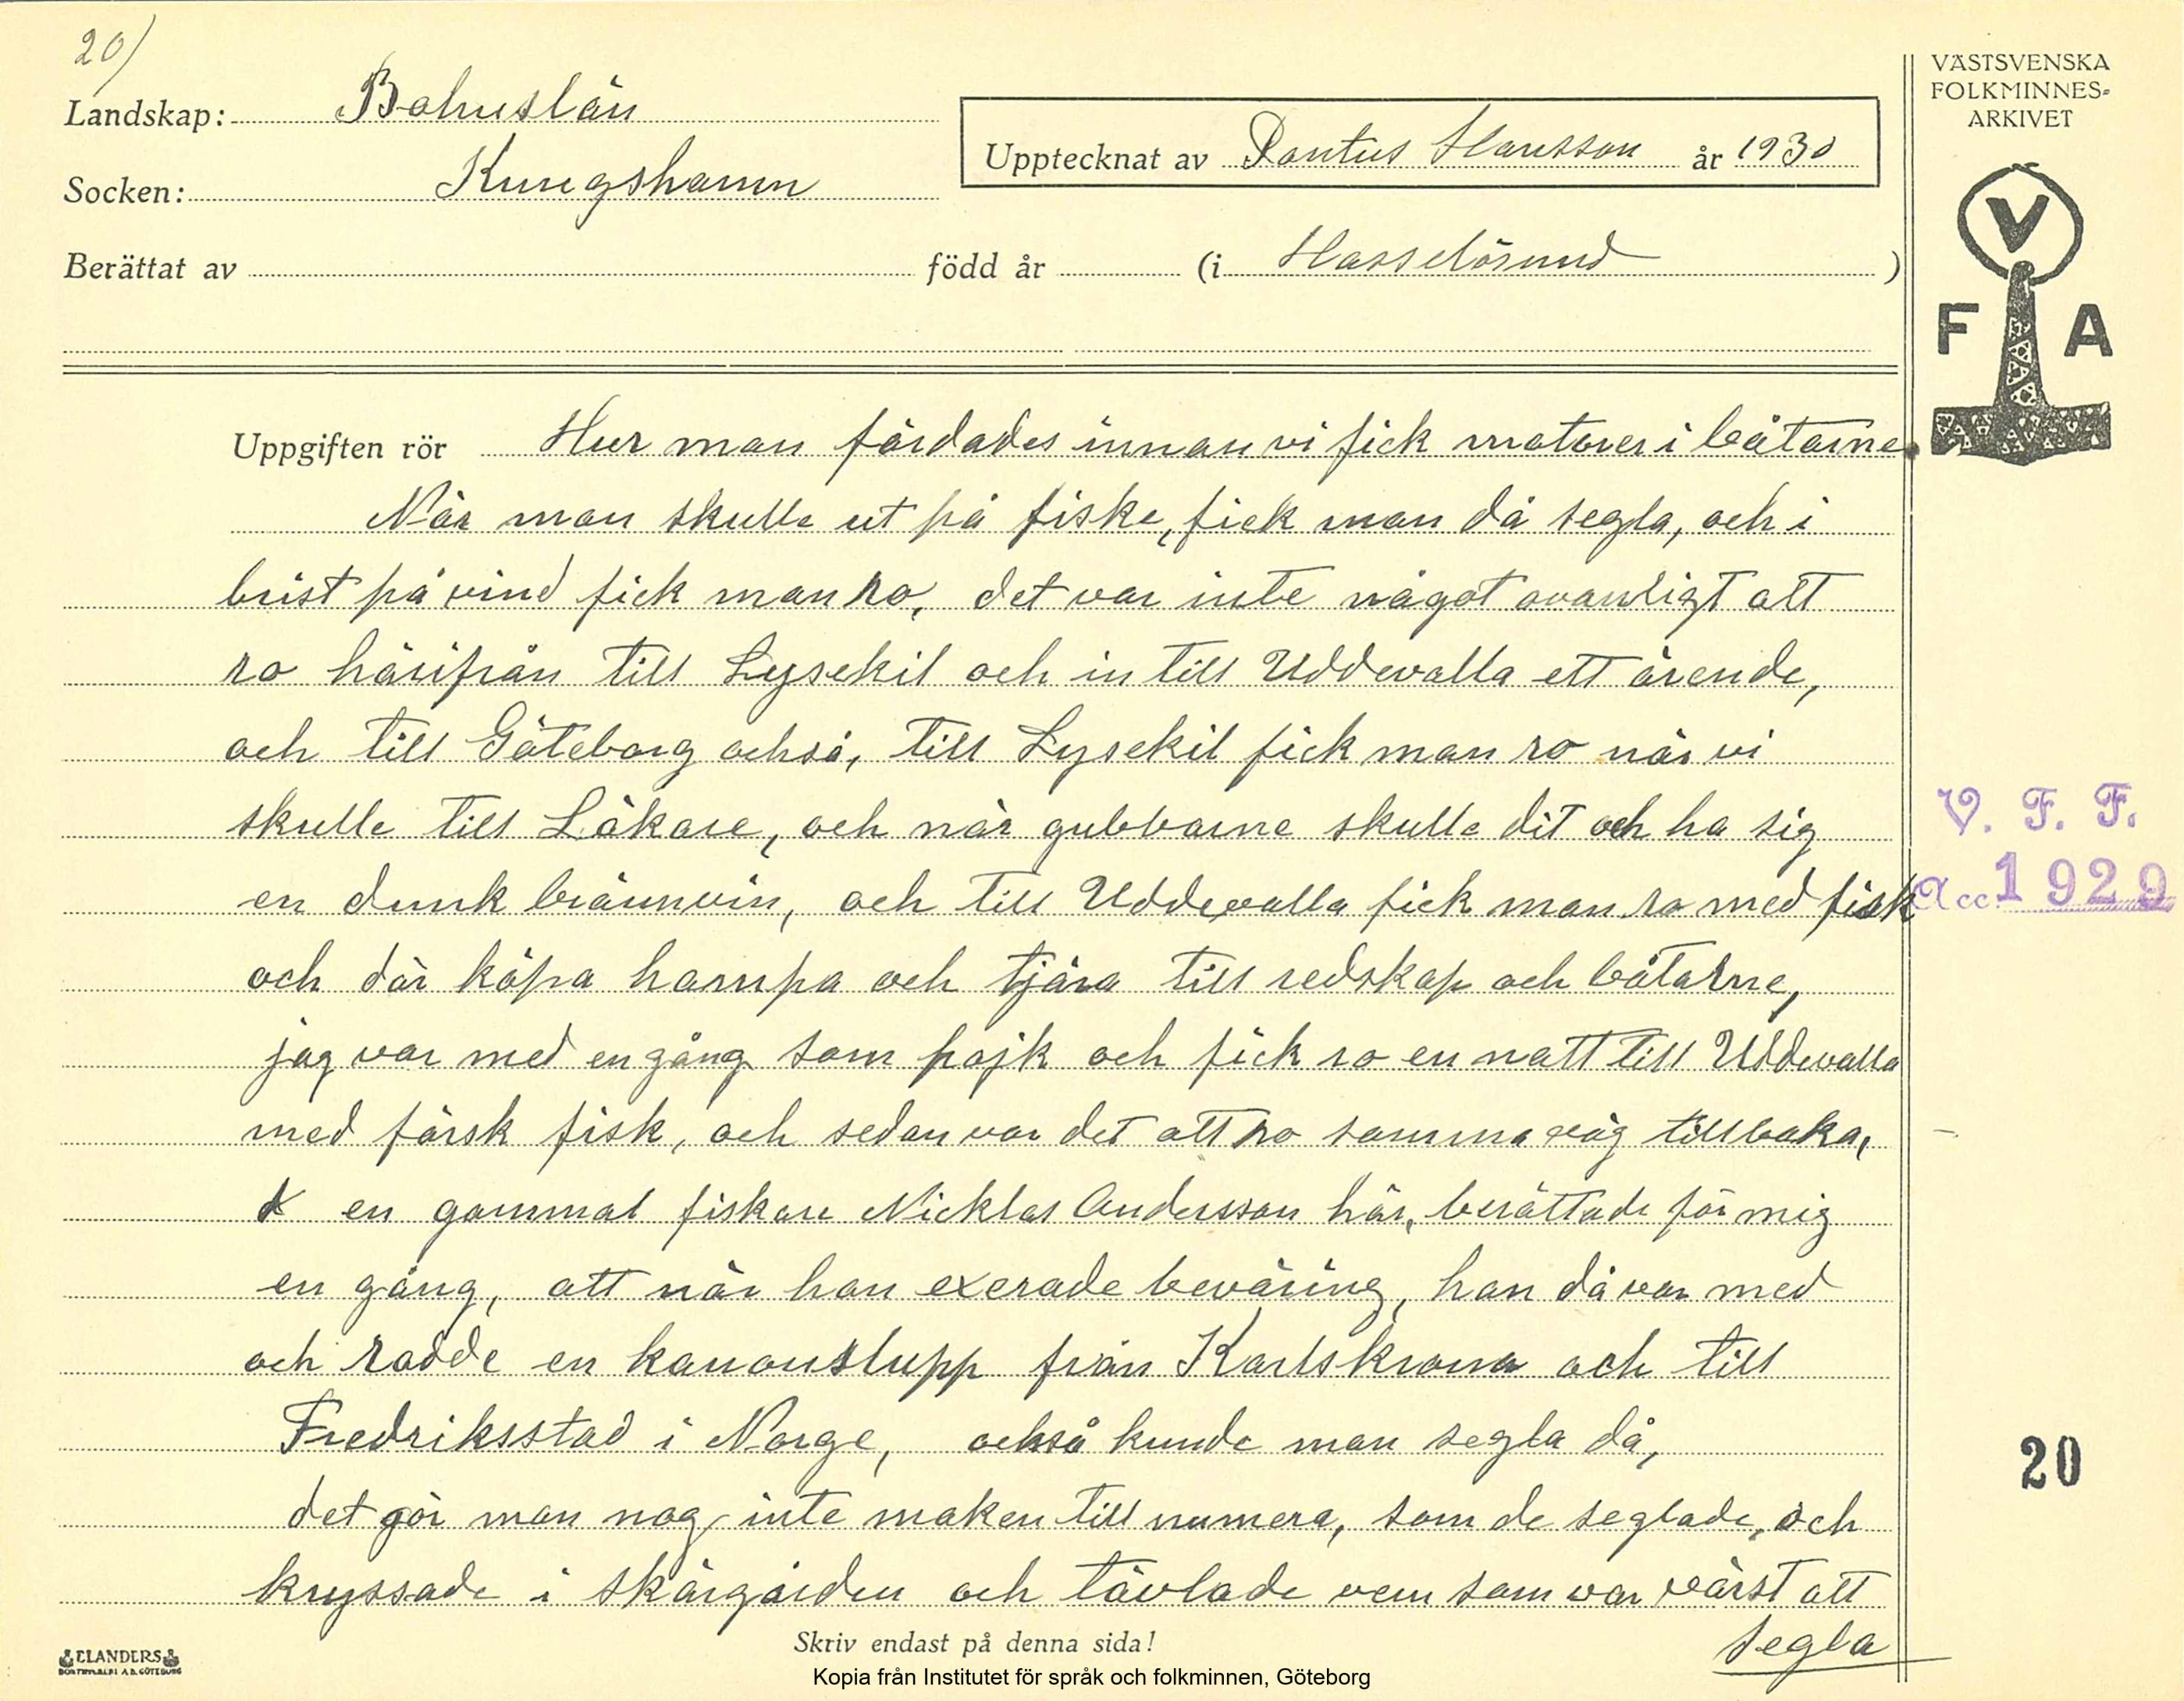 20)
Landskap: Bohuslän
Socken: Kungshamn
Upptecknat av Pontus Hansson år 1930
Berättat av född år (i Hasselösund )
VÄSTSVENSKA
FOLKMINNES-
ARKIVET
V
F A
Uppgiften rör Hur man färdades innan vi fick motorer i båtarne.
När man skulle ut på fiske, fick man då segla, och i
brist på vind fick man ro, det var inte något ovanligt att
ro härifrån till Lysekil och in till Uddevalla ett ärende,
och till Göteborg också, till Lysekil fick man ro när vi
skulle till Läkare, och när gubbarne skulle dit och ha sig
en dunk brännvin, och till Uddevalla fick man ro med fisk
och där köpa hampa och tjära till redskap och båtarne,
jag var med en gång som pojk och fick ro en natt till Uddevalla
med färsk fisk, och sedan var det att ro samma väg tillbaka,
en gammal fiskare Nicklas Andersson här, berättade för mig
en gång, att när han exerade beväring, han då var med
och rodde en kanonslupp från Karlskrona och till
Fredriksstad i Norge, också kunde man segla då,
det gör man nog inte maken till numera, som de seglade, och
kryssade i skärgården och tävlade vem som var värst att
segla
V. F. F.
Acc. 1929
20
Skriv endast på denna sida!
ELANDERS
BOKTRYCKERI A.B. GÖTEBORG
Kopia från Institutet för språk och folkminnen, Göteborg